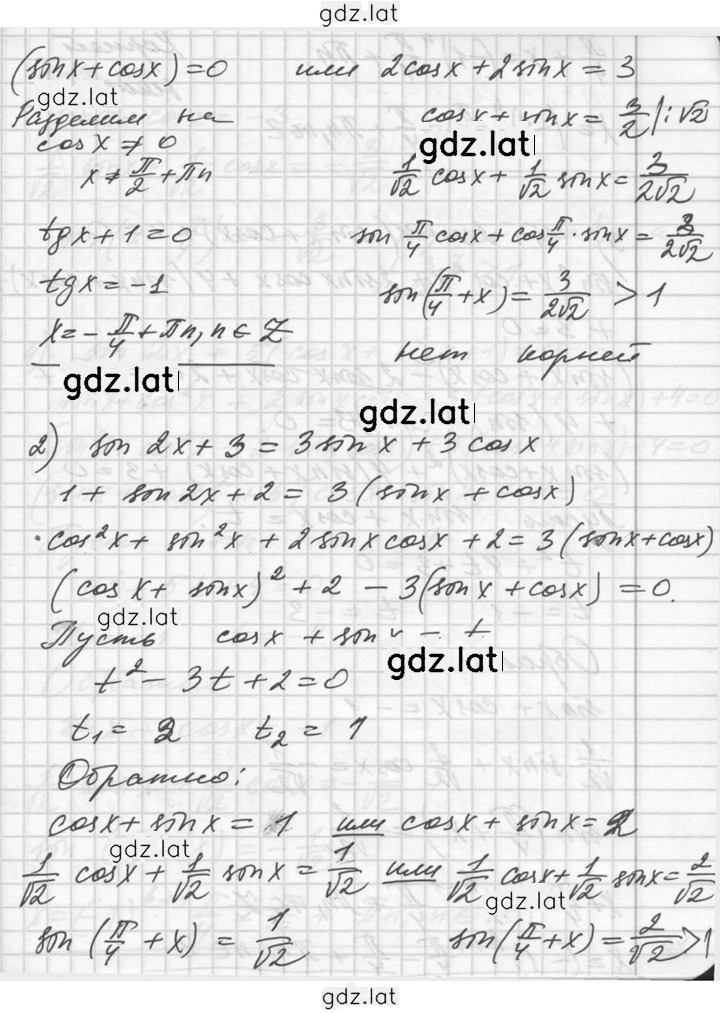 gdz.lat
(sinx+cosx)=0 или 2cosx+2sinx=3
gdz.lat
Разделим на cosx+sinx=3/2 |:√2
cosx≠0 gdz.lat
x≠π/2+πn 1/√2 cosx+1/√2 sinx=3/2√2
tgx+1=0 sin π/4 cosx+cos π/4·sinx=3/2√2
tgx=-1 sin(π/4+x)=3/2√2 >1
x=-π/4+πn, n∈Z нет корней
gdz.lat gdz.lat
2) sin2x+3=3sinx+3cosx
1+sin2x+2=3(sinx+cosx)
cos²x+sin²x+2sinxcosx+2=3(sinx+cosx)
(cosx+sinx)²+2-3(sinx+cosx)=0.
gdz.lat
Пусть cosx+sinx=t
gdz.lat
t²-3t+2=0
t₁=2 t₂=1
Обратно:
cosx+sinx=1 или cosx+sinx=2
gdz.lat
1/√2 cosx+1/√2 sinx=1/√2 или 1/√2 cosx+1/√2 sinx=2/√2
gdz.lat
sin(π/4+x)=1/√2 sin(π/4+x)=2/√2>1
gdz.lat